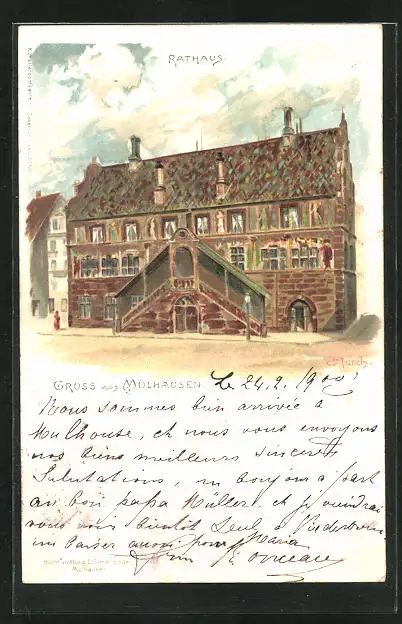 RATHAUS.
C. Münch.
GRUSS aus MÜLHAUSEN. Le 24.2.1900
Nous sommes bien arrivée à
Mulhouse, et nous vous envoyons
nos biens meilleurs sincères
Salutations, un bonjour à part
au bon papa Müller, et je viendrai
vous voir bientôt Seul à
un baiser aussi pour Maria
Mülhausen